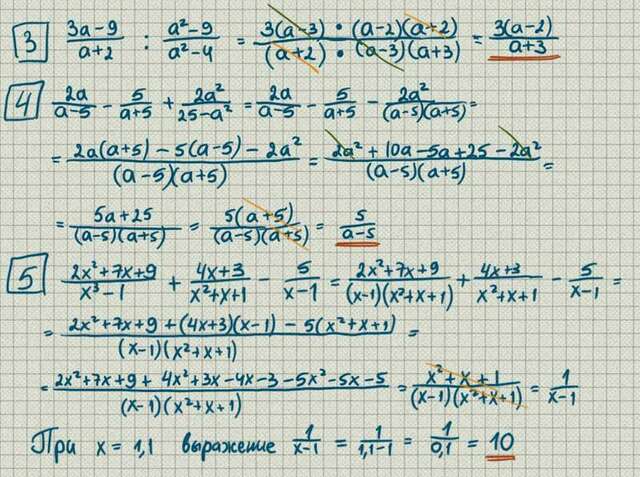 3 (3a-9)/(a+2) : (a²-9)/(a²-4) = (3(a-3)·(a-2)(a+2))/((a+2)·(a-3)(a+3)) = (3(a-2))/(a+3)
4 2a/(a-5) - 5/(a+5) + 2a²/(25-a²) = 2a/(a-5) - 5/(a+5) - 2a²/((a-5)(a+5)) =
= (2a(a+5) - 5(a-5) - 2a²)/((a-5)(a+5)) = (2a² + 10a - 5a + 25 - 2a²)/((a-5)(a+5)) =
= (5a+25)/((a-5)(a+5)) = (5(a+5))/((a-5)(a+5)) = 5/(a-5)
5 (2x²+7x+9)/(x³-1) + (4x+3)/(x²+x+1) - 5/(x-1) = (2x²+7x+9)/((x-1)(x²+x+1)) + (4x+3)/(x²+x+1) - 5/(x-1) =
= (2x²+7x+9+(4x+3)(x-1) - 5(x²+x+1))/((x-1)(x²+x+1)) =
= (2x²+7x+9+4x²+3x-4x-3-5x²-5x-5)/((x-1)(x²+x+1)) = (x²+x+1)/((x-1)(x²+x+1)) = 1/(x-1)
При x = 1,1 выражение 1/(x-1) = 1/(1,1-1) = 1/0,1 = 10